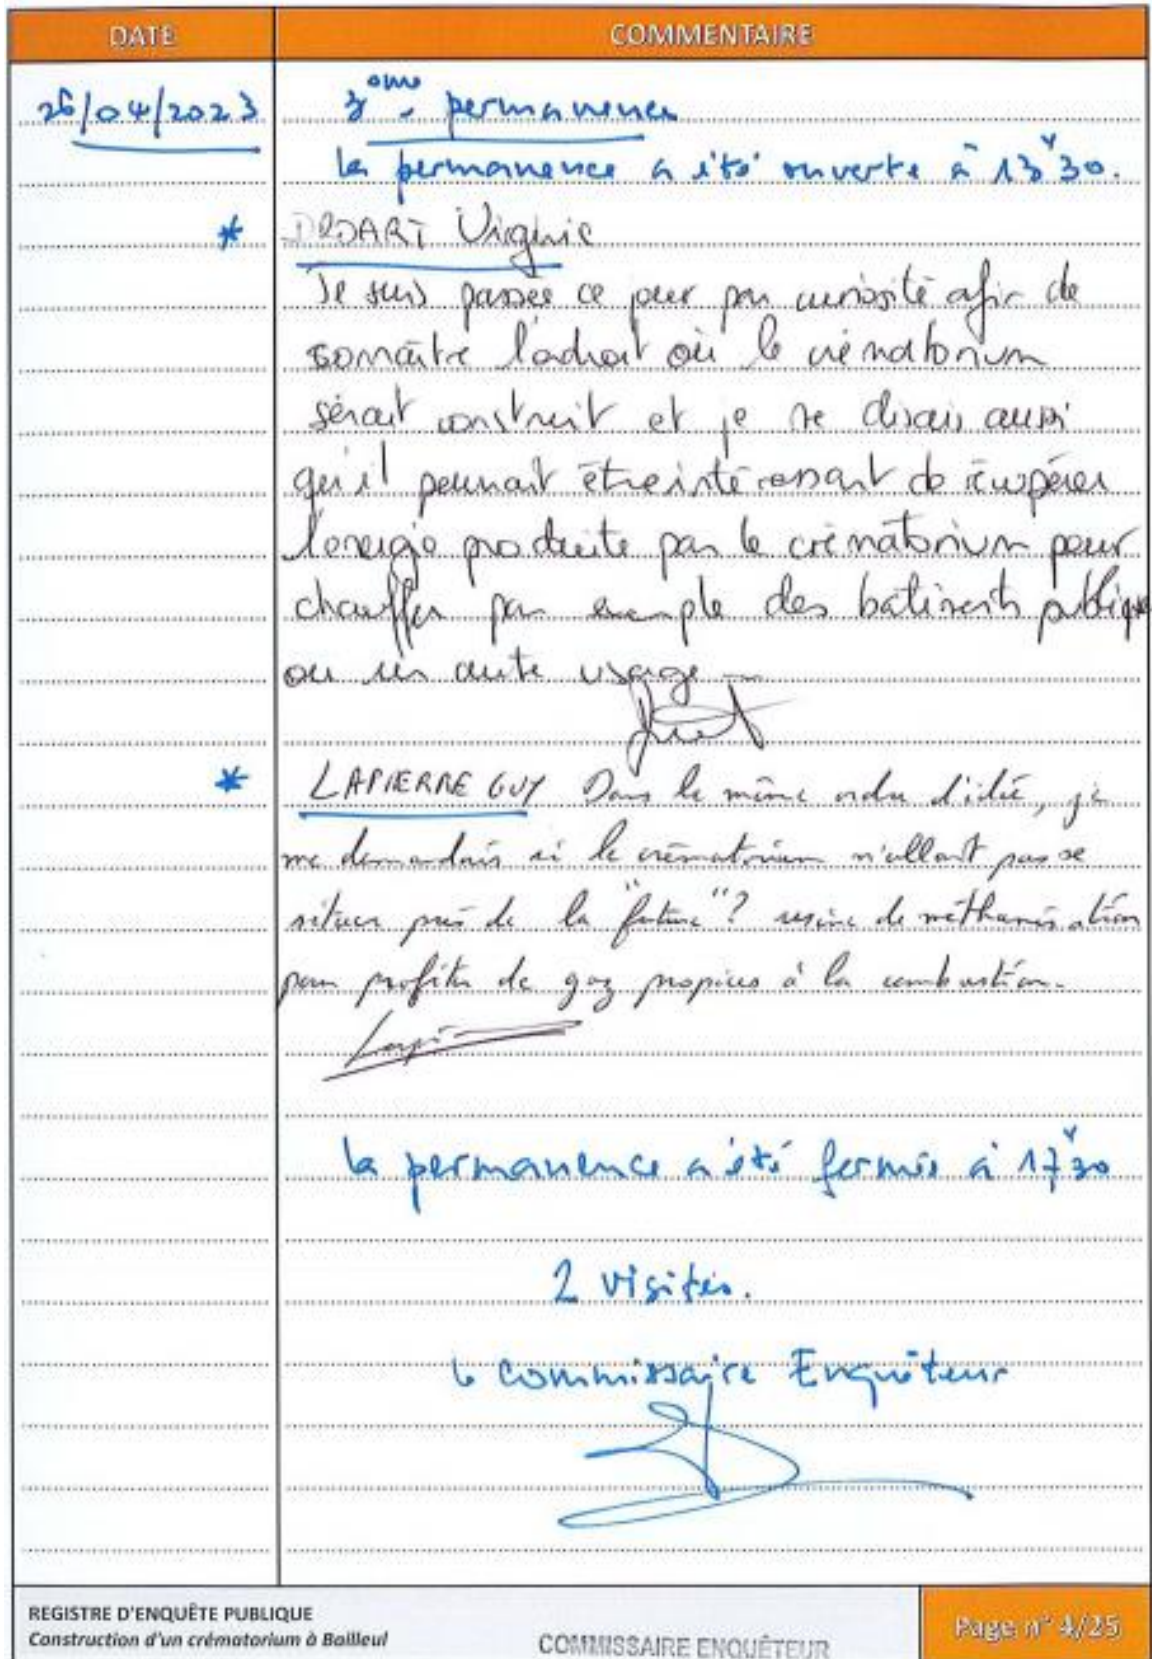 DATE
COMMENTAIRE
26/04/2023
3ème permanence
la permanence a été ouverte à 13h30.
* Virginie
Je suis passée ce jour par curiosité afin de
connaître l'adroit où le crématorium
serait construit et je me disais aussi
qu'il pourrait être intéressant de récupérer
l'énergie produite par le crématorium pour
chauffer par exemple des batiments publiques
ou un autre usage
* LAPIERRE GUY Dans le même ordre d'idée, je
me demandais si le crématorium n'allait pas se
situer près de la "future"? usine de méthanisation
pour profiter de gaz propices à la combustion.
la permanence a été fermée à 17h30
2 visites.
le Commissaire Enquêteur
REGISTRE D'ENQUÊTE PUBLIQUE
Construction d'un crématorium à Bailleul
COMMISSAIRE ENQUÊTEUR
Page n° 4/25